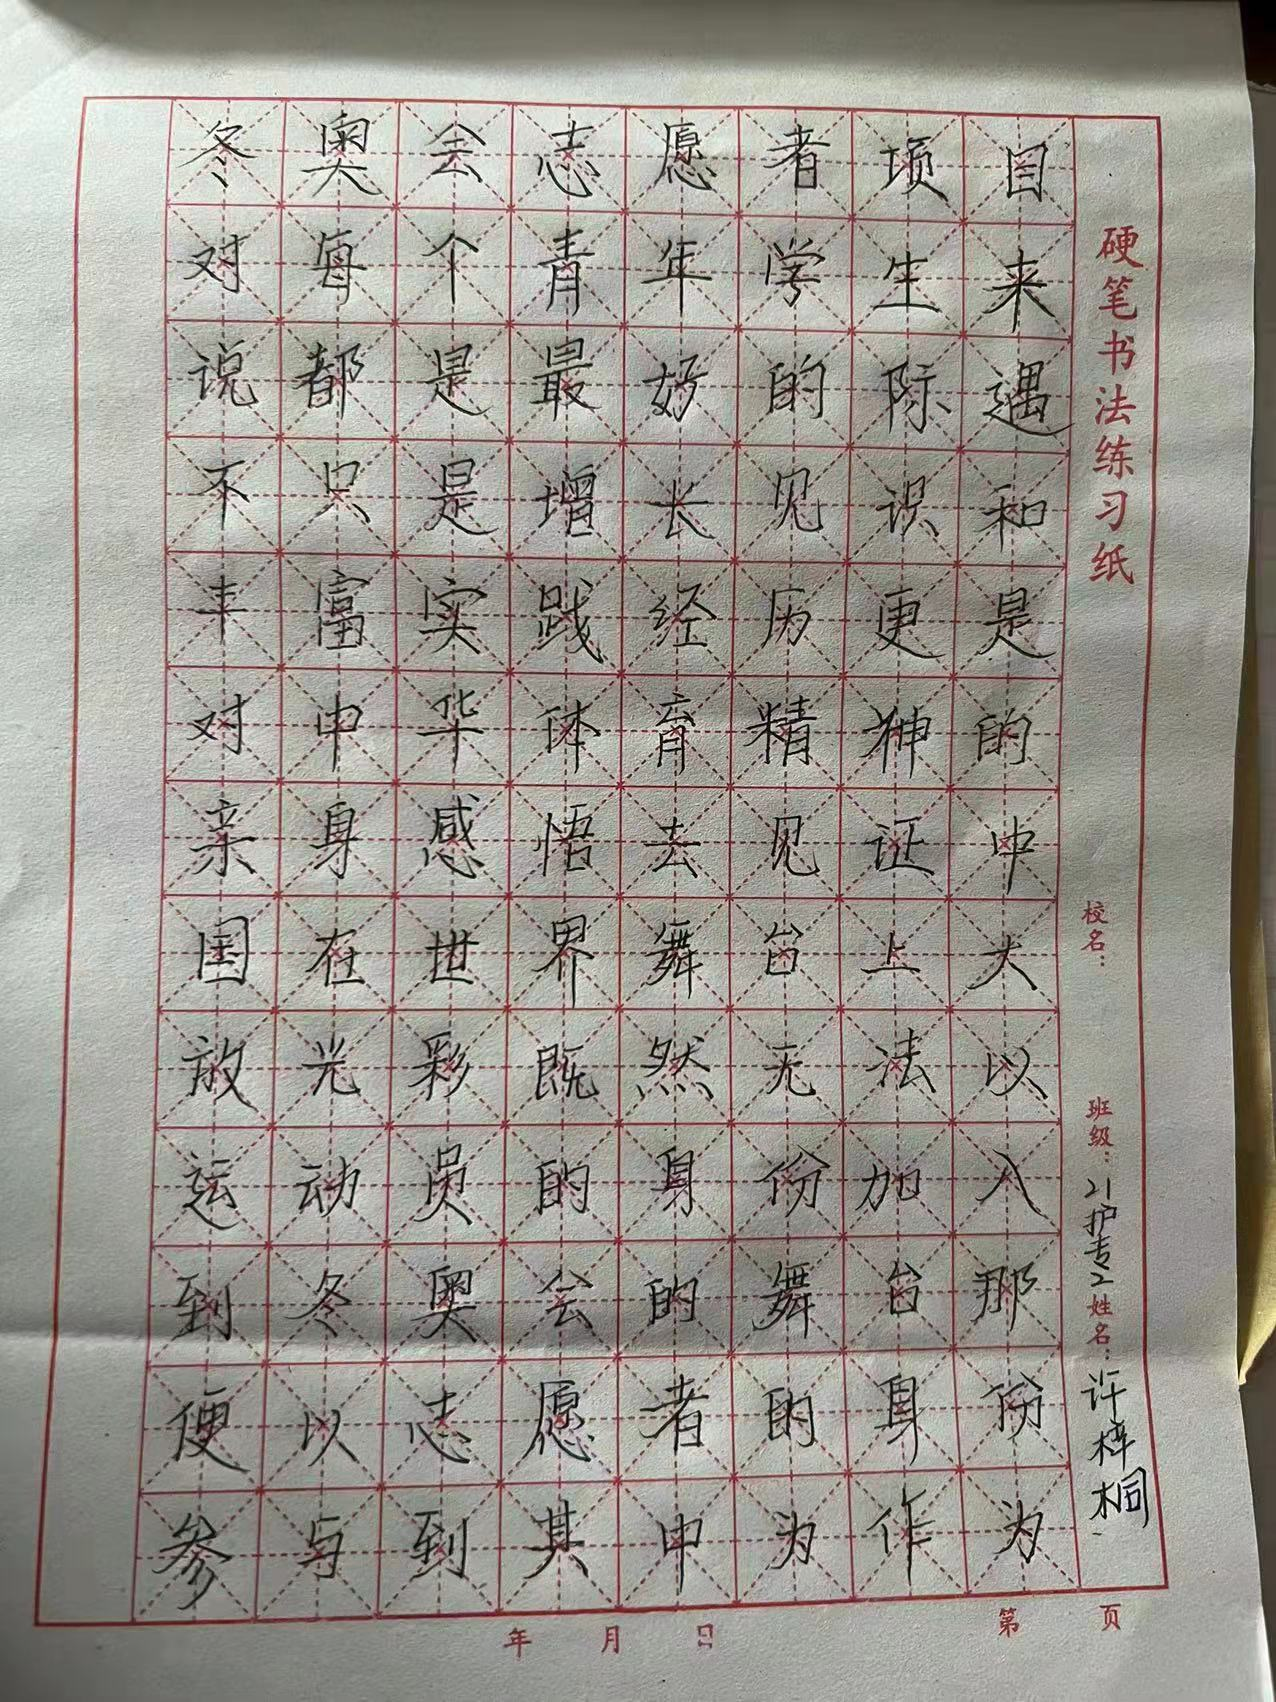 冬奥会志愿者项目
对每个青年学生来
说都是最好的际遇
不只是增长见识和
丰富实践经历更是
对中华体育精神的
亲身感悟去见证中
国在世界舞台上大
放光彩既然无法以
运动员的身份加入
到冬奥会的舞台那
便以志愿者的身份
参与到其中为作为
硬笔书法练习纸
校名：
班级：21护专2 姓名：许梓桐
年 月 日
第 页